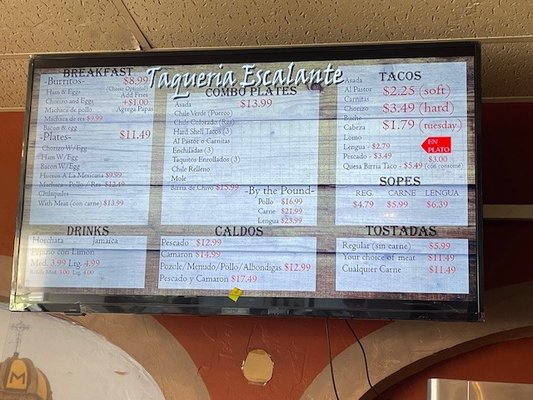 Taqueria Escalante
BREAKFAST
-Burritos- $8.99
Ham & Eggs
Chorizo and Eggs
Machaca de pollo
Machaca de res $9.99
Bacon & egg
(Cheese Optional)
Add Fries
+$1.00
Agrega Papas
-Plates- $11.49
Chorizo W/Egg
Ham W/Egg
Bacon W/Egg
Huevos A La Mexicana $9.99
Machaca - Pollo / Res $12.49
Chilaquiles
With Meat (con carne) $13.99
DRINKS
Horchata Jamaica
Pepino con Limon
Med. 3.99 Lrg. 4.99
COMBO PLATES
$13.99
Asada
Chile Verde (Puerco)
Chile Colorado (Res)
Hard Shell Tacos (3)
Al Pastor o Carnitas
Enchiladas (3)
Taquitos Enrollados (3)
Chile Relleno
Mole
Birria de Chivo $15.99
-By the Pound-
Pollo $16.99
Carne $21.99
Lengua $23.99
CALDOS
Pescado $12.99
Camaron $14.99
Pozole/Menudo/Pollo/Albondigas $12.99
Pescado y Camaron $17.49
TACOS
Asada
Al Pastor $2.25 (soft)
Carnitas
Chorizo $3.49 (hard)
Buche
Cabeza $1.79 (tuesday)
Lomo
Lengua - $2.79
Pescado - $3.49
EN
PLATO
$3.00
Quesa Birria Taco - $5.49 (con consome)
SOPES
REG. CARNE LENGUA
$4.79 $5.99 $6.39
TOSTADAS
Regular (sin carne) $5.99
Your choice of meat $11.49
Cualquier Carne $11.49
M